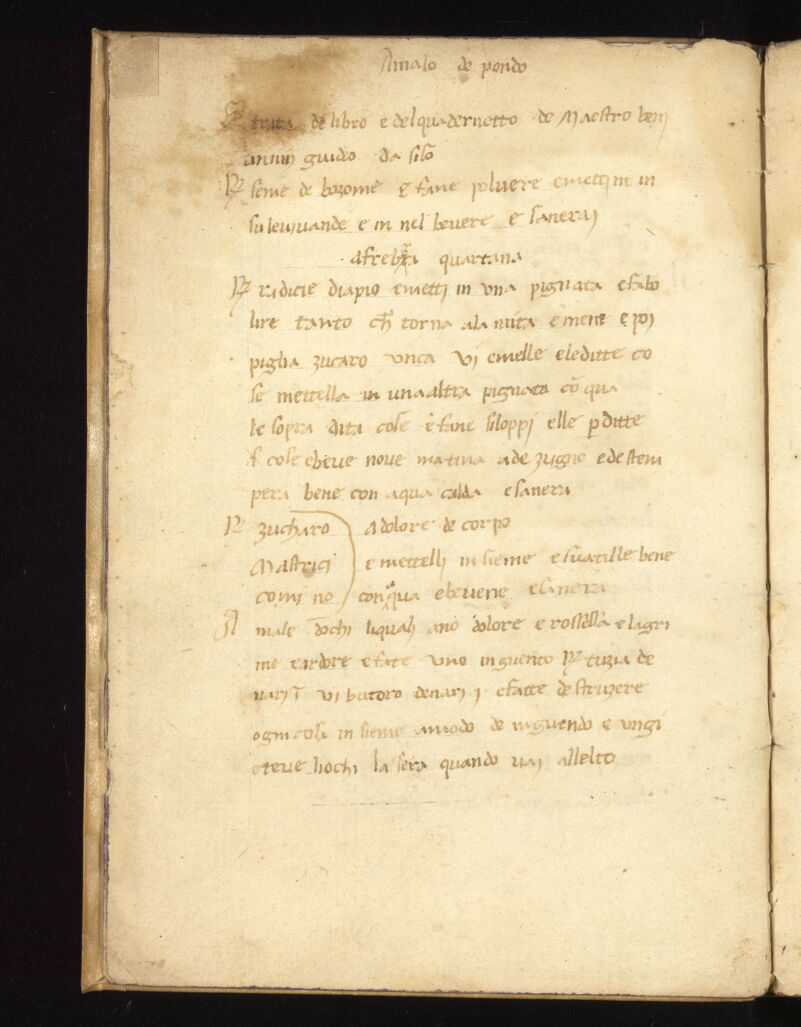 Amalo de pondo
trata de libro e del quadernetto de Maestro beni
annin guido da silo
R seme de bozome e fane polvere e mettine in
su le vivande e in nel bevere e sanerai
afrebra quartana
R radicie diapio emetti in una pignata e falo
lire tanto ch torna ala mita e mene e poi
piglia zucaro unca vi e melle e le ditte co
se mettella in una altra pignata co qua
le sopra dita cose e fane siloppi elle p ditte
cose ebeve nove matina a dezugno e destem
pera bene con aqua calda e sanera
R zucharo a dolore de corpo
Mastrici e mettelli insieme e scatille bene
comino con aqua ebevene e sanera
Al male dochi liquali ano dolore e rossella e lagri
me e ardore e fate uno inguento R tuzia de
nari vi butoro denari j e fatte destruzere
ogni cosa insieme amodo de inguendo e ungi
eteve liochi la sera quando vai alletto